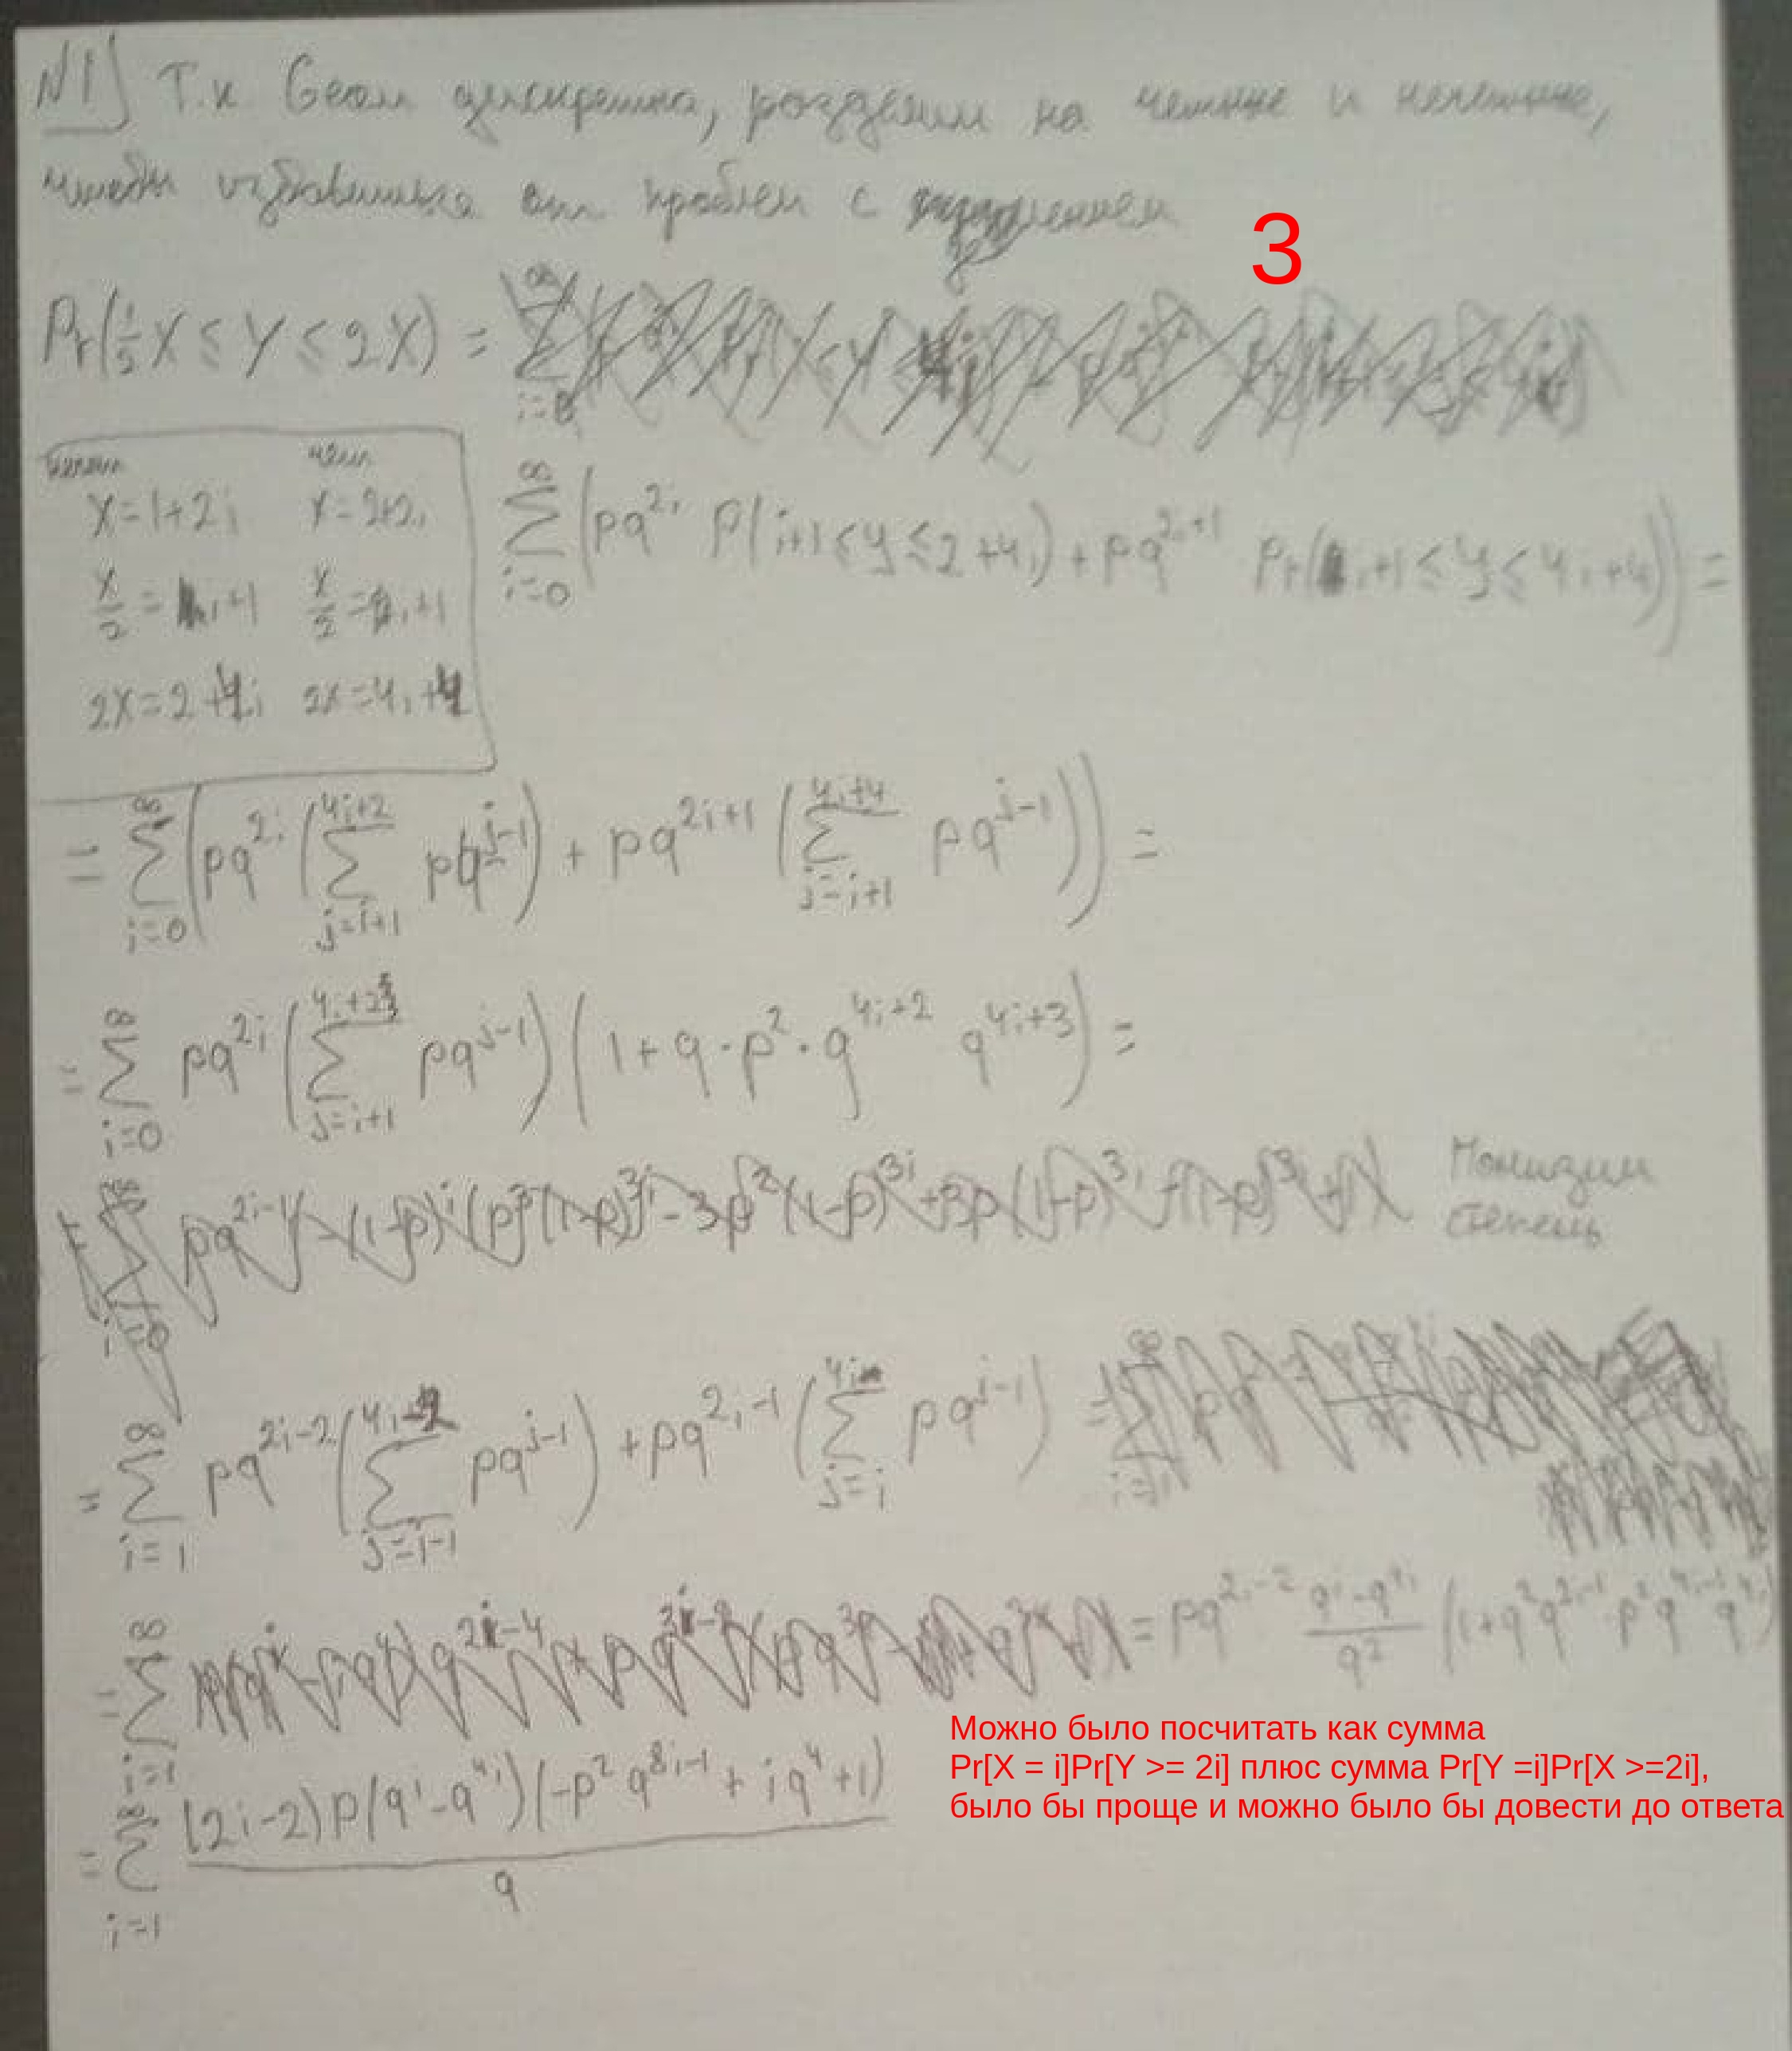 №1) Т.к. Geom дискретна, разделим на четные и нечетные,
чтобы избавиться от проблем с
3
Pr(½X ≤ Y ≤ 2X) =
нечет чет
X=1+2i X=2+2i
X/2 = i+1 X/2 = i+1
2X=2+4i 2X=4i+4
∑_{i=0}^{∞} (pq^{2i} P(i+1 ≤ y ≤ 2+4i) + pq^{2i+1} Pr(i+1 ≤ y ≤ 4i+4)) =
= ∑_{i=0}^{∞} (pq^{2i} (∑_{j=i+1}^{4i+2} pq^{j-1}) + pq^{2i+1} (∑_{j=i+1}^{4i+4} pq^{j-1})) =
= ∑_{i=0}^{∞} pq^{2i} (∑_{j=i+1}^{4i+2} pq^{j-1}) (1+q·p^2·q^{4i+2} q^{4i+3}) =
Понизим
степень
= ∑_{i=1}^{∞} pq^{2i-2} (∑_{j=i-1}^{4i-2} pq^{j-1}) + pq^{2i-1} (∑_{j=i}^{4i} pq^{j-1})
= ∑_{i=1}^{∞} = pq^{2i-2} (q^i - q^{4i})/q^2 (1+q^2 q^{2i-1} p^2 q^{4i-1} q^{4i})
= ∑_{i=1}^{∞} (2i-2)p(q^i - q^{4i})(-p^2 q^{8i-1} + iq^4 + 1) / q
Можно было посчитать как сумма
Pr[X = i]Pr[Y >= 2i] плюс сумма Pr[Y =i]Pr[X >=2i],
было бы проще и можно было бы довести до ответа